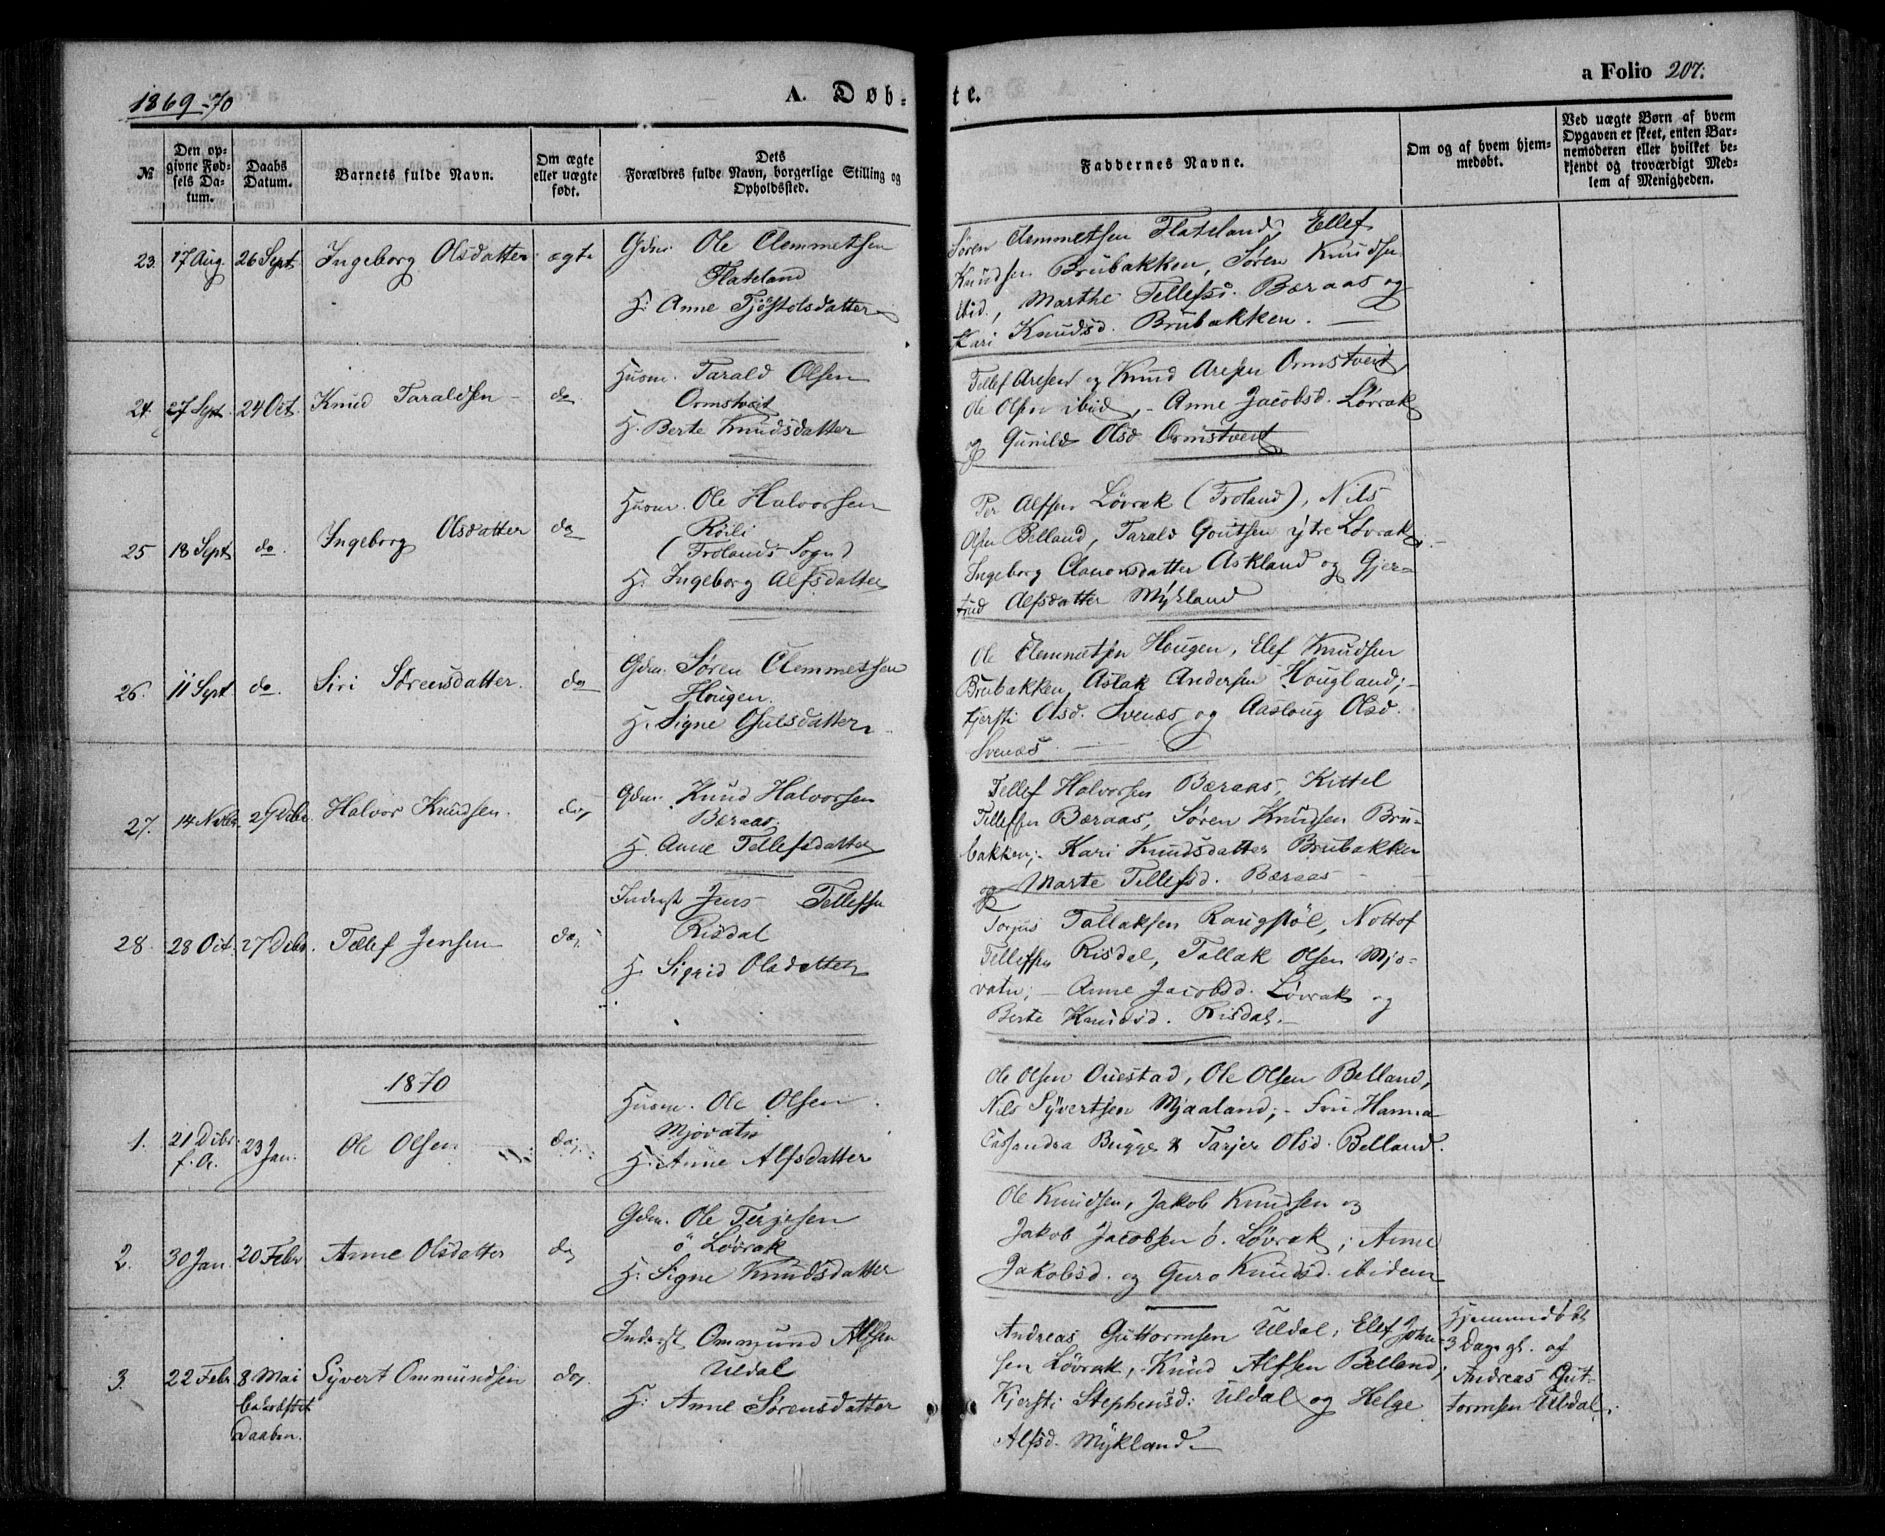 1869-70
A. Døb-
te.
a Folio 207.
№
Den op-
givne Fød-
sels Da-
tum.
Daabs
Datum.
Barnets fulde Navn.
Om ægte
eller uægte
født.
Dets
Forældres fulde Navn, borgerlige Stilling og
Opholdssted.
Faddernes Navne.
Om og af hvem hjem-
medøbt.
Ved uægte Børn af hvem
Opgaven er skeet, enten Bar-
nemoderen eller hvilket be-
kjendt og troværdigt Med-
lem af Menigheden.
23. 17 Aug. 26 Sept. Ingeborg Olsdatter ægte
Gdm. Ole Clemmetsen
Flateland
H: Anne Tjöstolsdatter
Søren Clemmetsen Flateland, Ellef
Knudsen Brubakken, Søren Knudsen
ibid., Marthe Tellefsd. Bæraas og
Kari Knudsd. Brubakken.
24. 27 Sept. 24 Oct. Knud Taraldsen do
Husm. Tarald Olsen
Ormstveit
H. Berte Knudsdatter
Tellef Aresen og Knud Aresen Ormstveit,
Ole Olsen ibid, - Anne Jacobsd. Løvrak
og Gunild Olsd Ormstveit
25 18 Sept do. Ingeborg Olsdatter do
Husm. Ole Halvorsen
Röili
(Frolands Sogn)
H: Ingeborg Alfsdatter
Per Alfsen Løvrak (Froland), Nils
Olsen Belland, Tarald Goutsen ytre Løvrak,
Ingeborg Aanonsdatter Askland og Gjer-
trud Alfsdatter Mykland
26. 11 Sept do. Siri Sørensdatter. do
Gdm. Søren Clemmetsen
Hougen
H. Signe Gulsdatter
Ole Clemmetsen Hougen, Elef Knudsen
Brubakken, Aslak Andersen Hougland; -
Kjersti Olsd. Svenæs og Aasloug Olsd.
Svenæs.
27. 14 Novbr. 27 Debr. Halvor Knudsen. do
Gdm. Knud Halvorsen
Bæraas.
H. Anne Tellefsdatter
Tellef Halvorsen Bæraas, Kittel
Tellefsen Bæraas, Søren Knudsen Bru-
bakken; - Kari Knudsdatter Brubakken
og Marte Tellefsd. Bæraas
28. 28 Oct. 27 Debr. Tellef Jensen do
Inderst Jens Tellefsen
Risdal
H. Sigrid Olsdatter
Torjus Tallaksen Raugstöl, Nottof
Tellefsen Risdal, Tallak Olsen Mjo-
vatn; - Anne Jacobsd. Løvrak og
Berte Knudsd. Risdal. -
1870
1. 21 Debr. 23 Jan. Ole Olsen do
f. A.
Husm. Ole Olsen
Mjovatn
H. Anne Alfsdatter
Ole Olsen Ouestad, Ole Olsen Belland,
Nils Syvertsen Mjaaland; - Fru Hanna
Cassandra Bugge & Tarjer Olsd. Belland.
2. 30 Jan. 20 Febr Anne Olsdatter do
Gdm. Ole Terjesen
ö Løvrak
H. Signe Knudsdatter
Ole Knudsen, Jakob Knudsen og
Jakob Jacobsen ö. Løvrak; Anne
Jakobsd. og Guro Knudsd. ibidem
3. 22 Febr 8 Mai Syvert Ommundsen do.
bekræftet
Daaben.
Inderst Ommund Alfsen
Uldal
H. Anne Sørensdatter
Andreas Guttormsen Uldal, Elef John-
sen Løvrak, Knud Alfsen Belland;
Kjersti Stephensd. Uldal og Helge
Alfsd. Mykland. -
Hjemmedöbt
3 Dage gl. af
Andreas Gut-
tormsen Uldal.